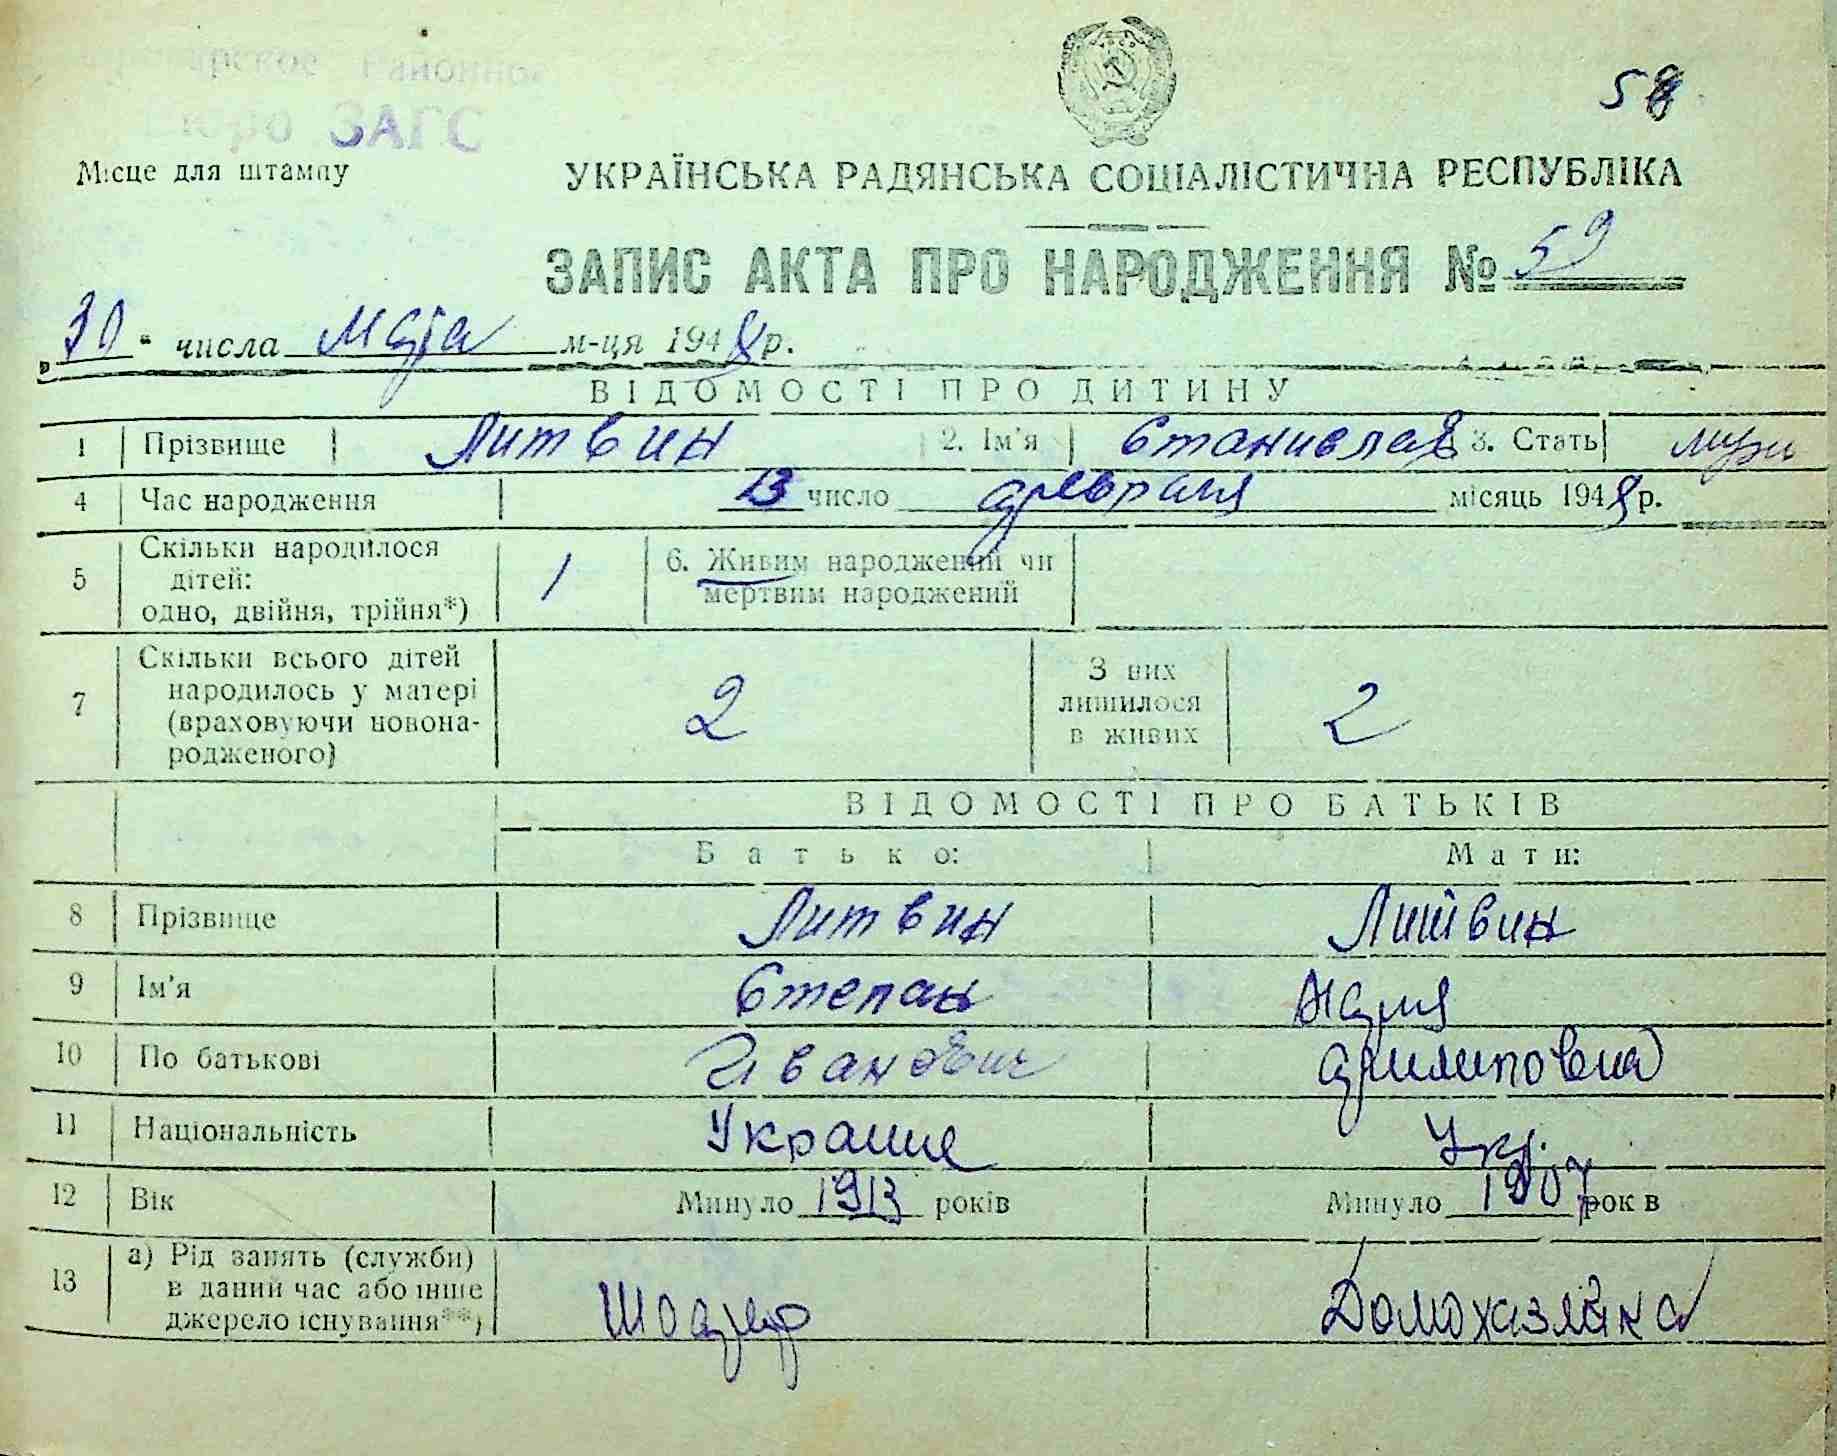 Бюро ЗАГС
58
Місце для штампу
УКРАЇНСЬКА РАДЯНСЬКА СОЦІАЛІСТИЧНА РЕСПУБЛІКА
ЗАПИС АКТА ПРО НАРОДЖЕННЯ № 59
"30" числа м-ця 1948 р.
ВІДОМОСТІ ПРО ДИТИНУ
1 Прізвище Литвин 2. Ім'я Станислав 3. Стать муж
4 Час народження 13 число февраля місяць 1948 р.
5 Скільки народилося дітей: одно, двійня, трійня*) 1 6. Живим народжений чи мертвим народжений
7 Скільки всього дітей народилось у матері (враховуючи новонародженого) 2 З них лишилося в живих 2
ВІДОМОСТІ ПРО БАТЬКІВ
Батько: Мати:
8 Прізвище Литвин Литвин
9 Ім'я Степан
10 По батькові Иванович Филиповна
11 Національність Украине Укр.
12 Вік Минуло 1913 років Минуло 1907 років
13 а) Рід занять (служби) в даний час або інше джерело існування**) Шофер Домохазяйка